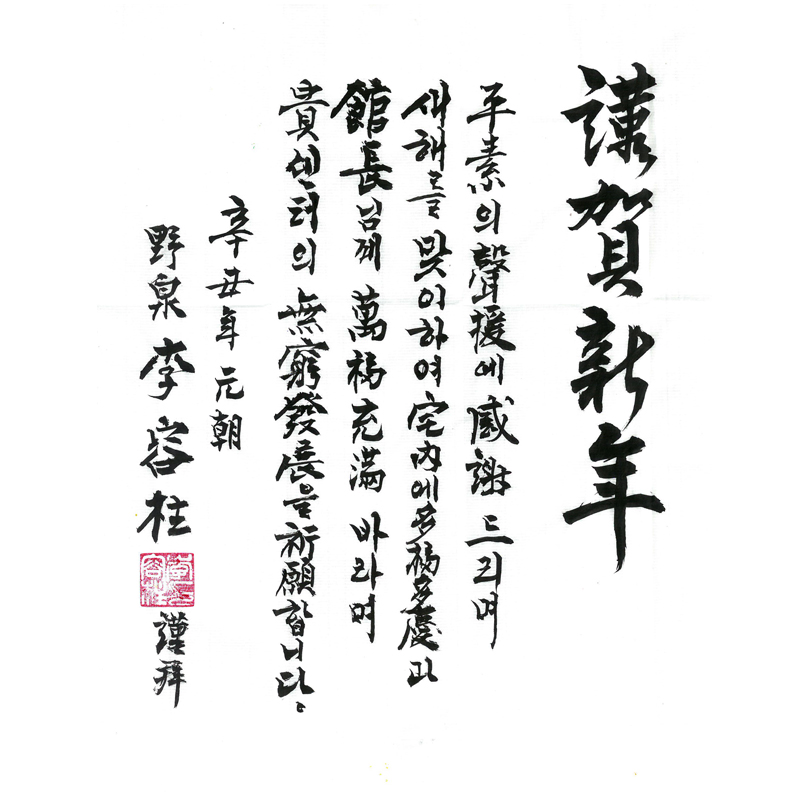 謹賀新年
平素의 聲援에 感謝 드리며
새해를 맞이하여 宅內에 多福多慶과
館長님게 萬福充滿 바라며
貴센터의 無窮發展을 祈願합니다.
辛丑年 元朝
野泉 李容柱
謹拜